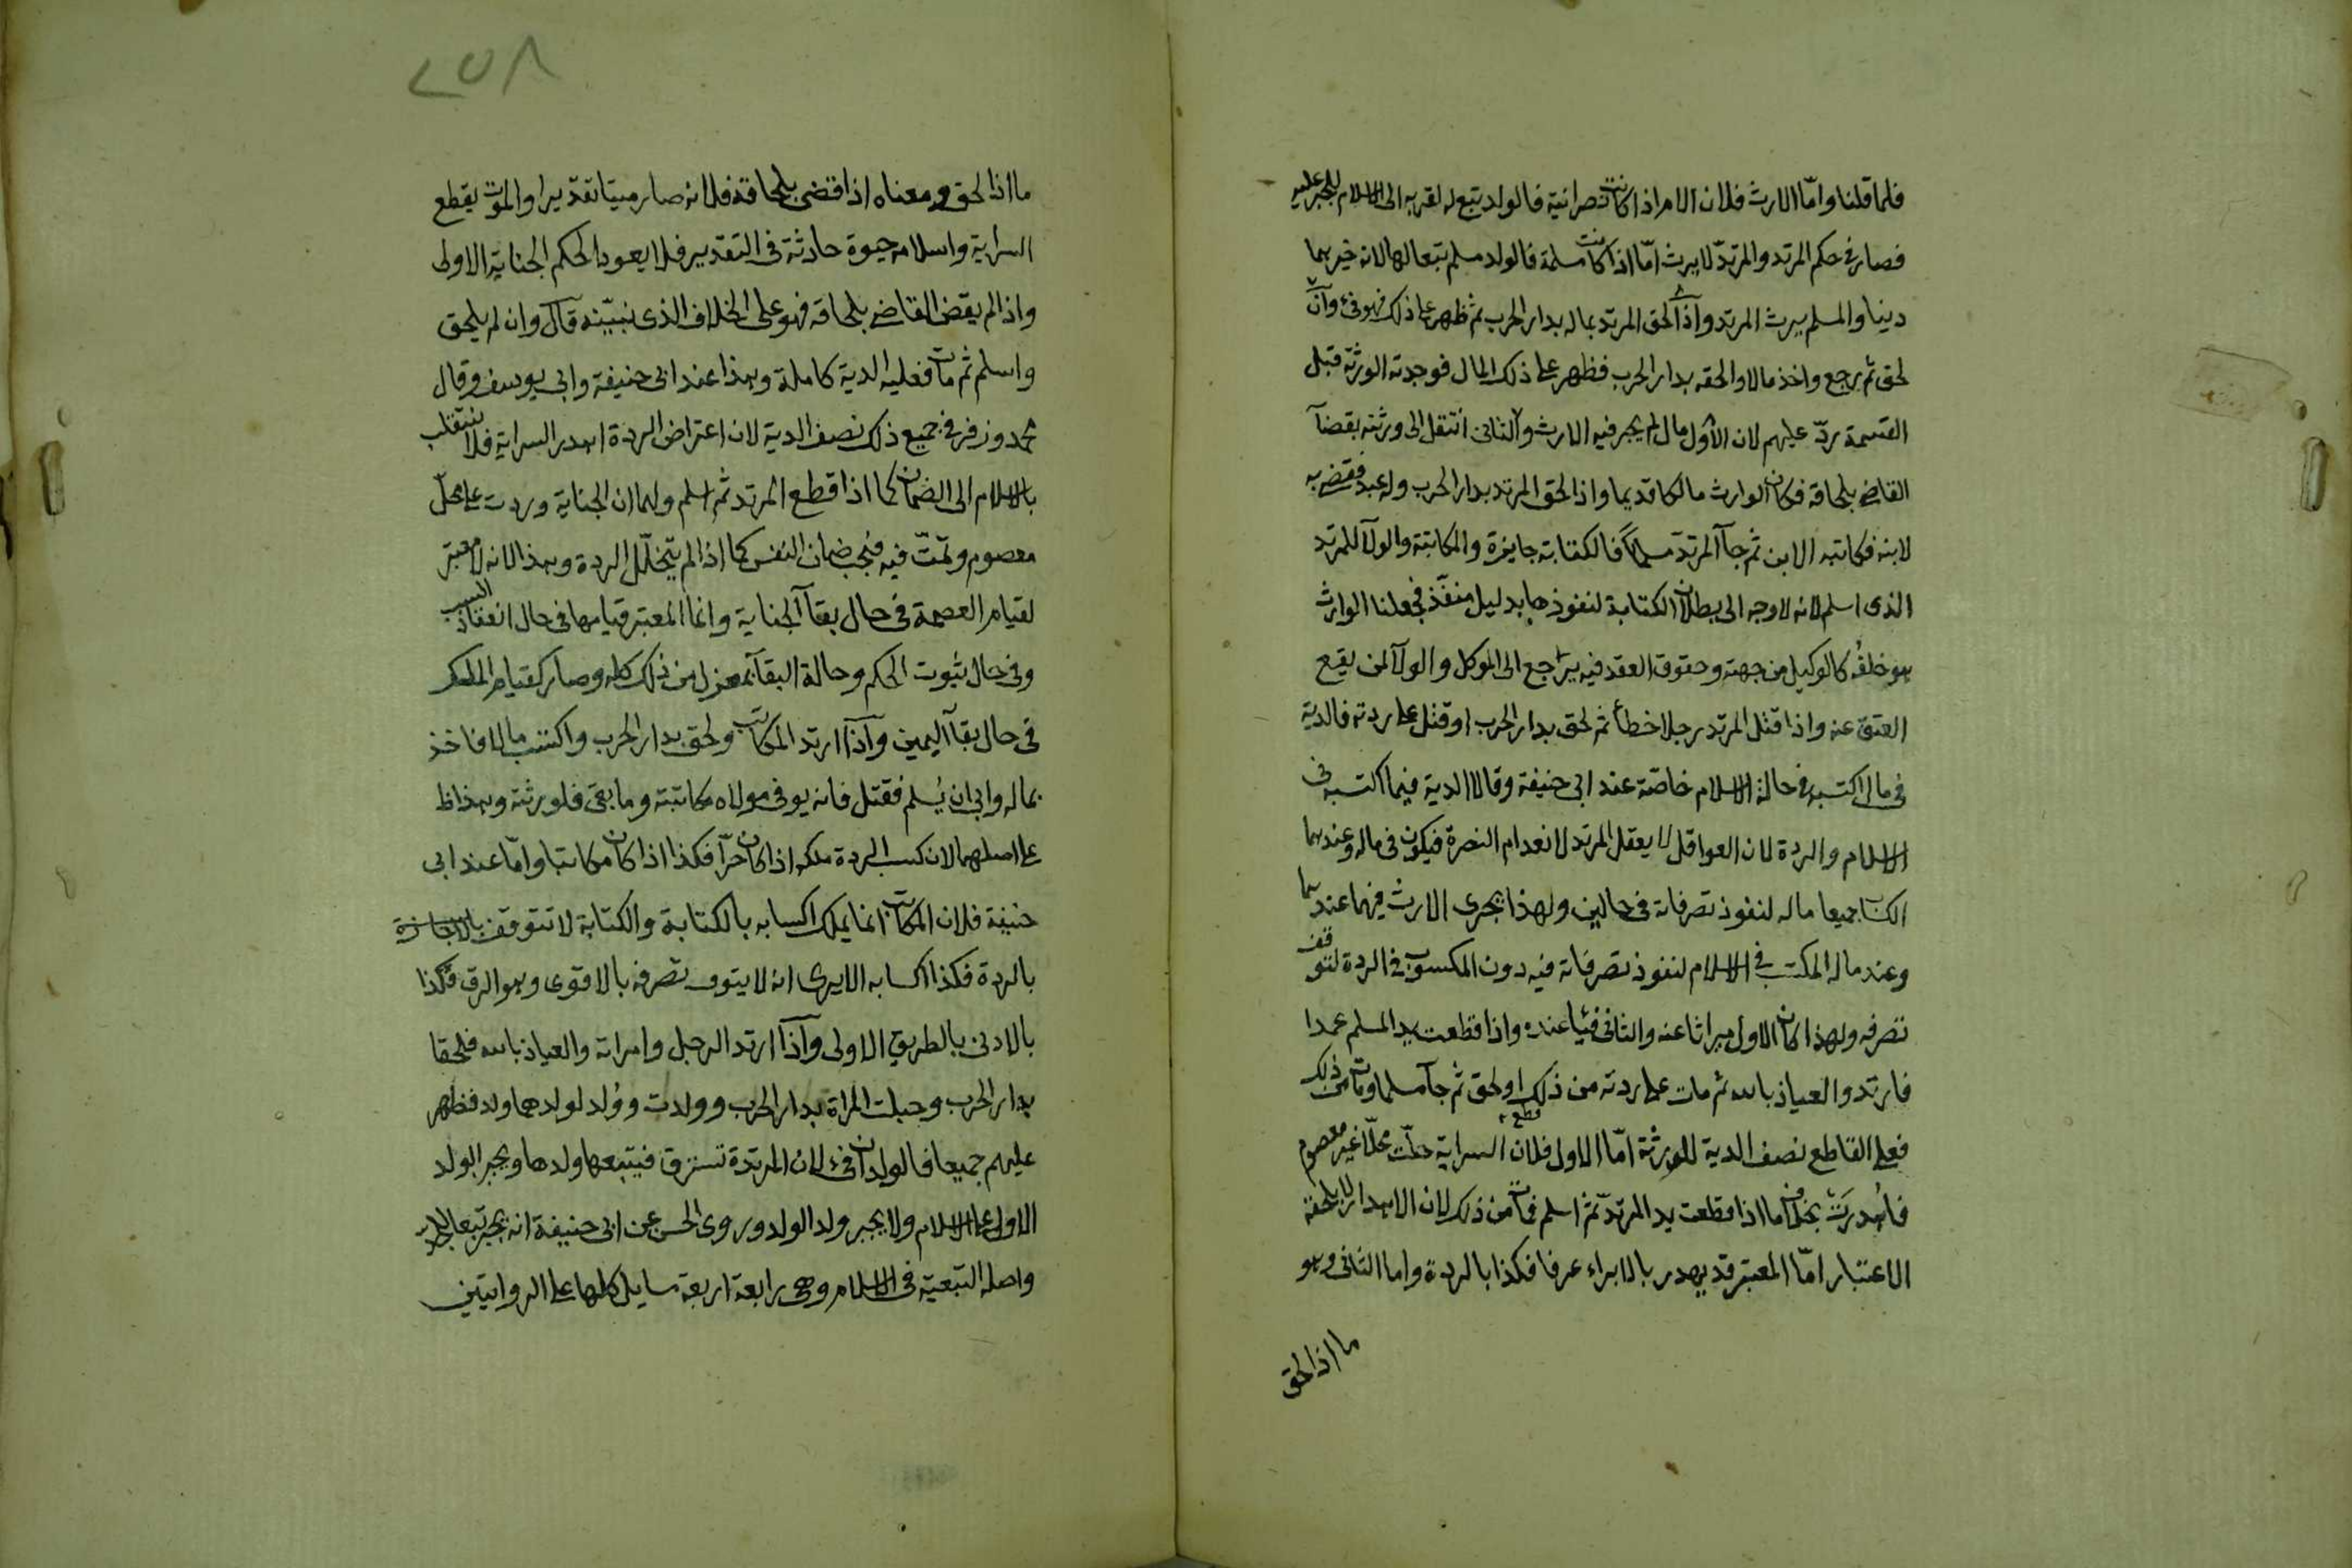 فلما قلنا واما الارث فلان الام اذا كانت نصرانية فالولد تبع له لقربه الى الاسلام للجبر عليه
فصار فى حكم المرتد والمرتد لا يرث امّا اذا كانت مسلمة فالولد مسلم تبعا لها لانه خيرهما
دينا والمسلم يرث المرتد واذا لحق المرتد بماله بدار الحرب ثم ظهر على ذلك فهو فئ وان
لحق ثم رجع واخذ مالا والحقه بدار الحرب فظهر على ذلك المال فوجدته الورثة قبل
القسمة ردّ عليهم لان الاول مال لم يجر فيه الارث والثانى انتقل الى ورثته بقضآ
القاضى بلحاقه فكان الوارث مالكا قديما واذا لحق المرتد بدار الحرب وله عبد فقضى به
لابنه فكاتبه الابن ثم جآ المرتد مسلما فالكتابة جايزة والمكاتبة والولآ للمرتد
الذى اسلم لانه لا وجه الى بطلان الكتابة لنفوذها بدليل منفّذ فجعلنا الوارث
هو خلفُه كالوكيل من جهته وحقوق العقد فيه يراجع الى الموكل والولآ لمن يقع
العتق عنه واذا قتل المرتد رجلا خطأ ثم لحق بدار الحرب او قتل على ردته فالدية
فى مال اكتسبه فى حالة الاسلام خاصّة عند ابى حنيفة وقالا الدية فيما اكتسبه فى
الاسلام والردة لان العواقل لا يعقل المرتد لانعدام النصرة فيكون فى ماله وعندهما
الكسبان جميعا ماله لنفوذ تصرفاته فى حالين ولهذا يجرى الارث فيهما عندهما
وعنده ماله المكتسب فى الاسلام لنفوذ تصرفاته فيه دون المكسوب فى الردة لتوقف
تصرفه ولهذا كان الاول ميراثا عنه والثانى فيئا عنده واذا قطعت يد المسلم عمدا
فارتد والعياذ بالله ثم مات على ردته من ذلك او لحق ثم جآ مسلما ومات من ذلك
فعلى القاطع نصف الدية للورثة امّا الاول فلان السراية حلّت محلّا غير معصوم
فأهدرت بخلاف ما اذا قطعت يد المرتدّ ثم اسلم فمات من ذلك لان الاهدار لا يلحقه
الاعتبار امّا المعتبر قد يهدر بالابراء عرفا فكذا بالردة واما الثانى وهو
ما اذا لحق
٢٥٨
ما اذا لحق ومعناه اذا قضى بلحاقه فلانه صار ميتا تقديرا والموت يقطع
السراية واسلامه حيوة حادثة فى التقدير فلا يعود الحكم الجناية الاولى
واذا لم يقض القاضى بلحاقه فهو على الخلاف الذى نبيّنه قال وان لم يلحق
واسلم ثم مات فعليه الدية كاملة وهذا عند ابى حنيفة وابى يوسف وقال
محمد وزفر فى جميع ذلك نصف الدية لان اعتراض الردة اهدر السراية فلا ينقلب
بالاسلام الى الضمان كما اذا قطع المرتد ثم اسلم ولهما ان الجناية وردت على محلّ
معصوم وتمّت فيه فيجب ضمان النفس كما اذا لم يتخلّل الردة وهذا لانه لا معتبر
لقيام العصمة فى حال بقآ الجناية وانما المعتبر قيامها فى حال انعقاد السبب
وفى حال ثبوت الحكم وحالة البقآ بمعزل من ذلك كله وصار كقيام الملك
فى حال بقآ اليمين واذا ارتد المكاتب ولحق بدار الحرب واكتسب مالا فاخذ
بماله وابى ان يُسلم فقتل فانه يوفى مولاه مكاتبته وما بقى فلورثته وهذا ظ
على اصلهما لان كسب الردة ملكه اذا كان حرّا فكذا اذا كان مكاتبا وامّا عند ابى
حنيفة فلان المكاتب انما يملك اكسابه بالكتابة والكتابة لا تتوقف
بالردة فكذا اكسابه الا يرى انه لا يتوقف تصرفه بالاقوى وهو الرق فكذا
بالادنى بالطريق الاولى واذا ارتد الرجل وامراته والعياذ بالله فلحقا
بدار الحرب وحبلت المراة بدار الحرب وولدت وولد لولدهما ولد فظهر
عليهم جميعا فالولدان فئ لان المرتدة تسترق فيتبعها ولدها ويجبر الولد
الاول على الاسلام ولا يجبر ولد الولد وروى الحسن عن ابى حنيفة انه يجبر تبعا للجد
واصله التبعية فى الاسلام وهى رابعة اربعة مسايل كلها على الروايتين